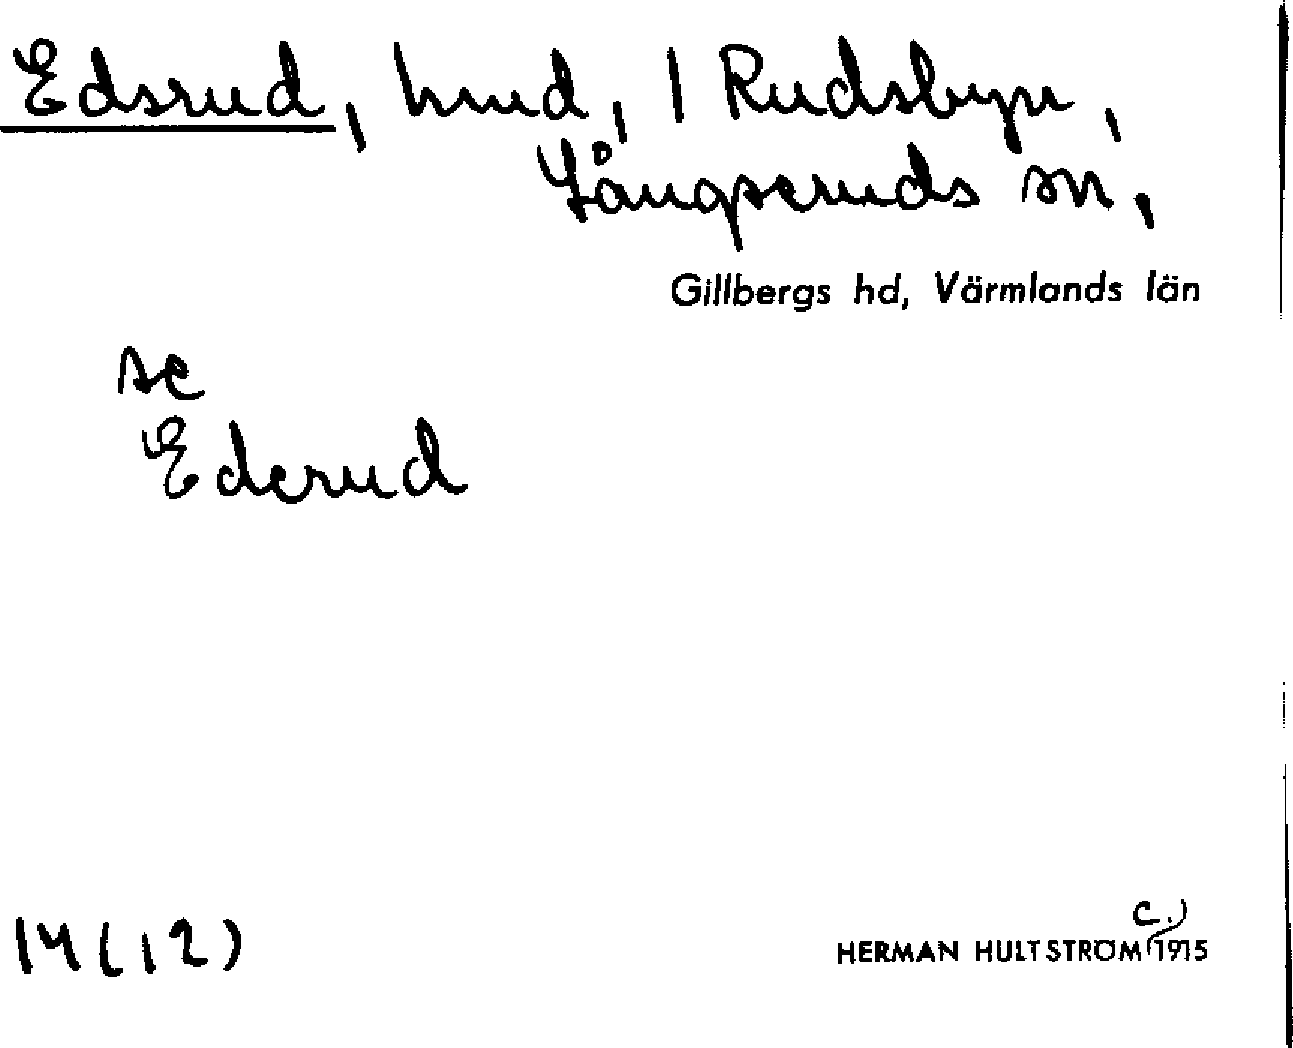 Edsrud, hmd, 1 Rudsbyn,
Långseruds sn,
Gillbergs hd, Värmlands län
se
Ederud
14(12)
HERMAN HULTSTRÖM c.) 1915